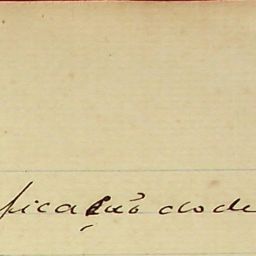 ficação do de